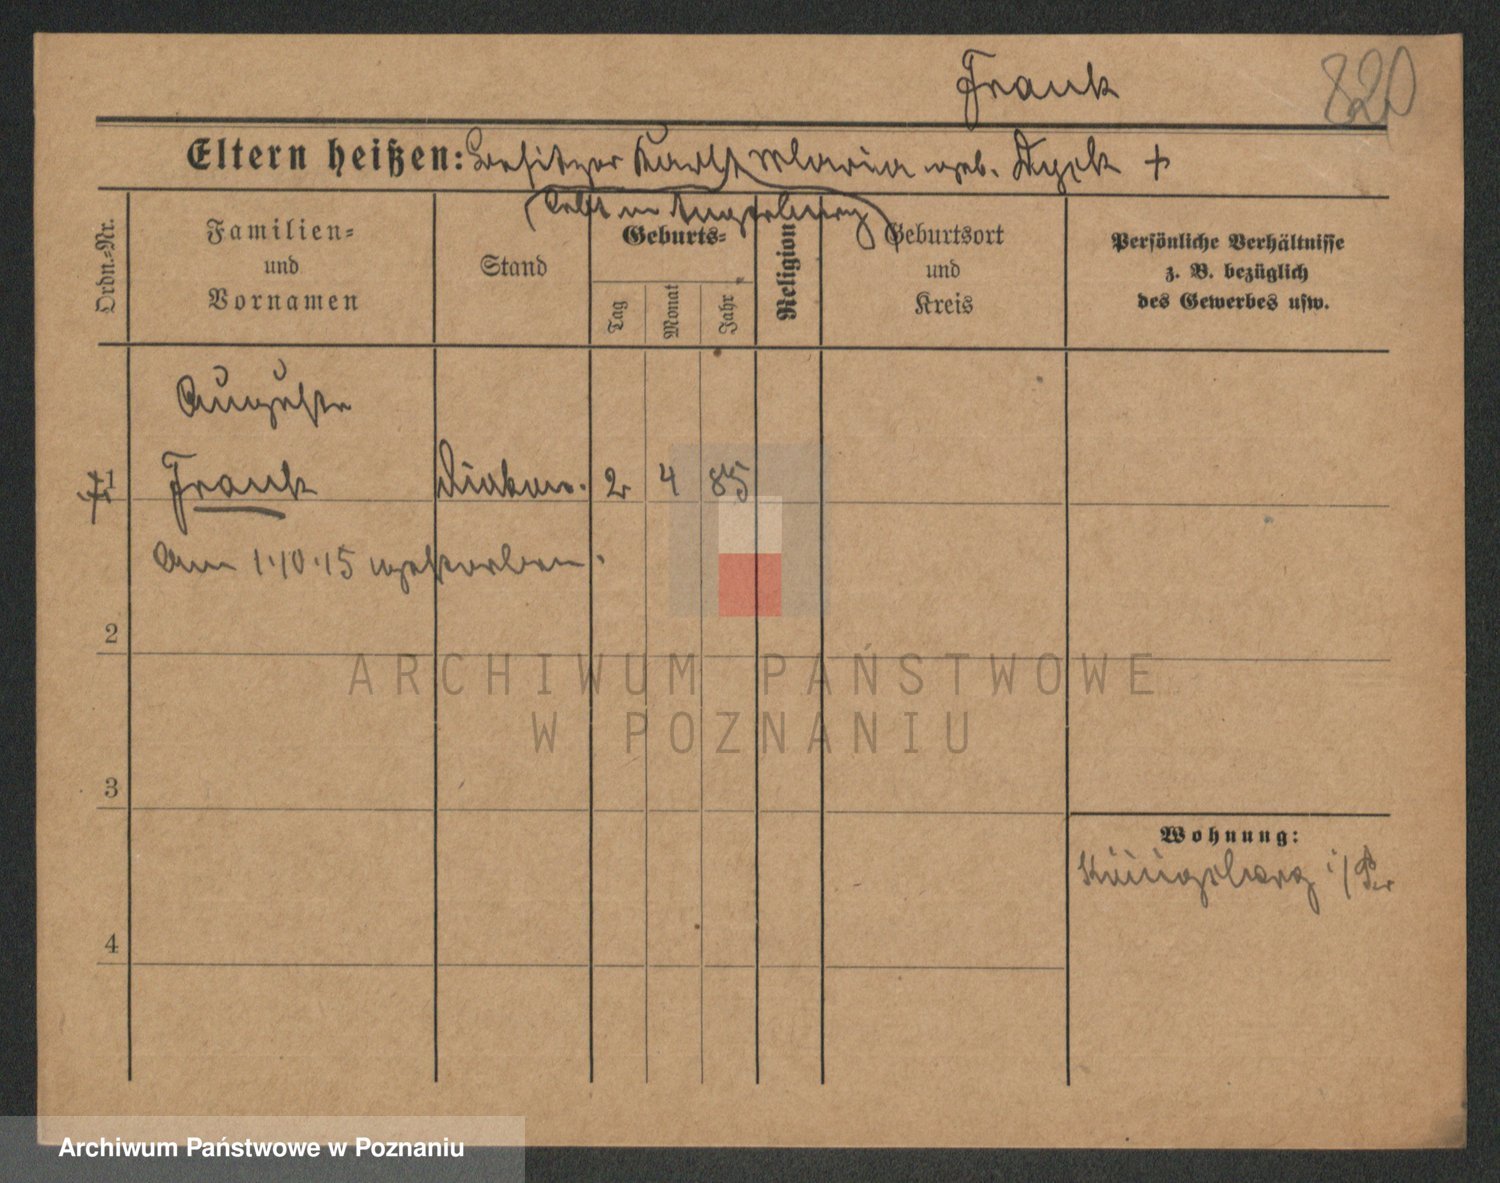 Frank 820
Eltern heißen: Besitzer Karl Maria geb. +
(lebt in Angerburg)
Ordn.-Nr.
Familien-
und
Vornamen
Stand
Geburts-
Tag
Monat
Jahr
Religion
Geburtsort
und
Kreis
Persönliche Verhältnisse
z. B. bezüglich
des Gewerbes usw.
Auguste
1 Frank Diakon. 2 4 85
Am 1.10.15 gestorben.
2
ARCHIWUM PAŃSTWOWE
W POZNANIU
3
Wohnung:
Königsberg i/Pr
4
Archiwum Państwowe w Poznaniu